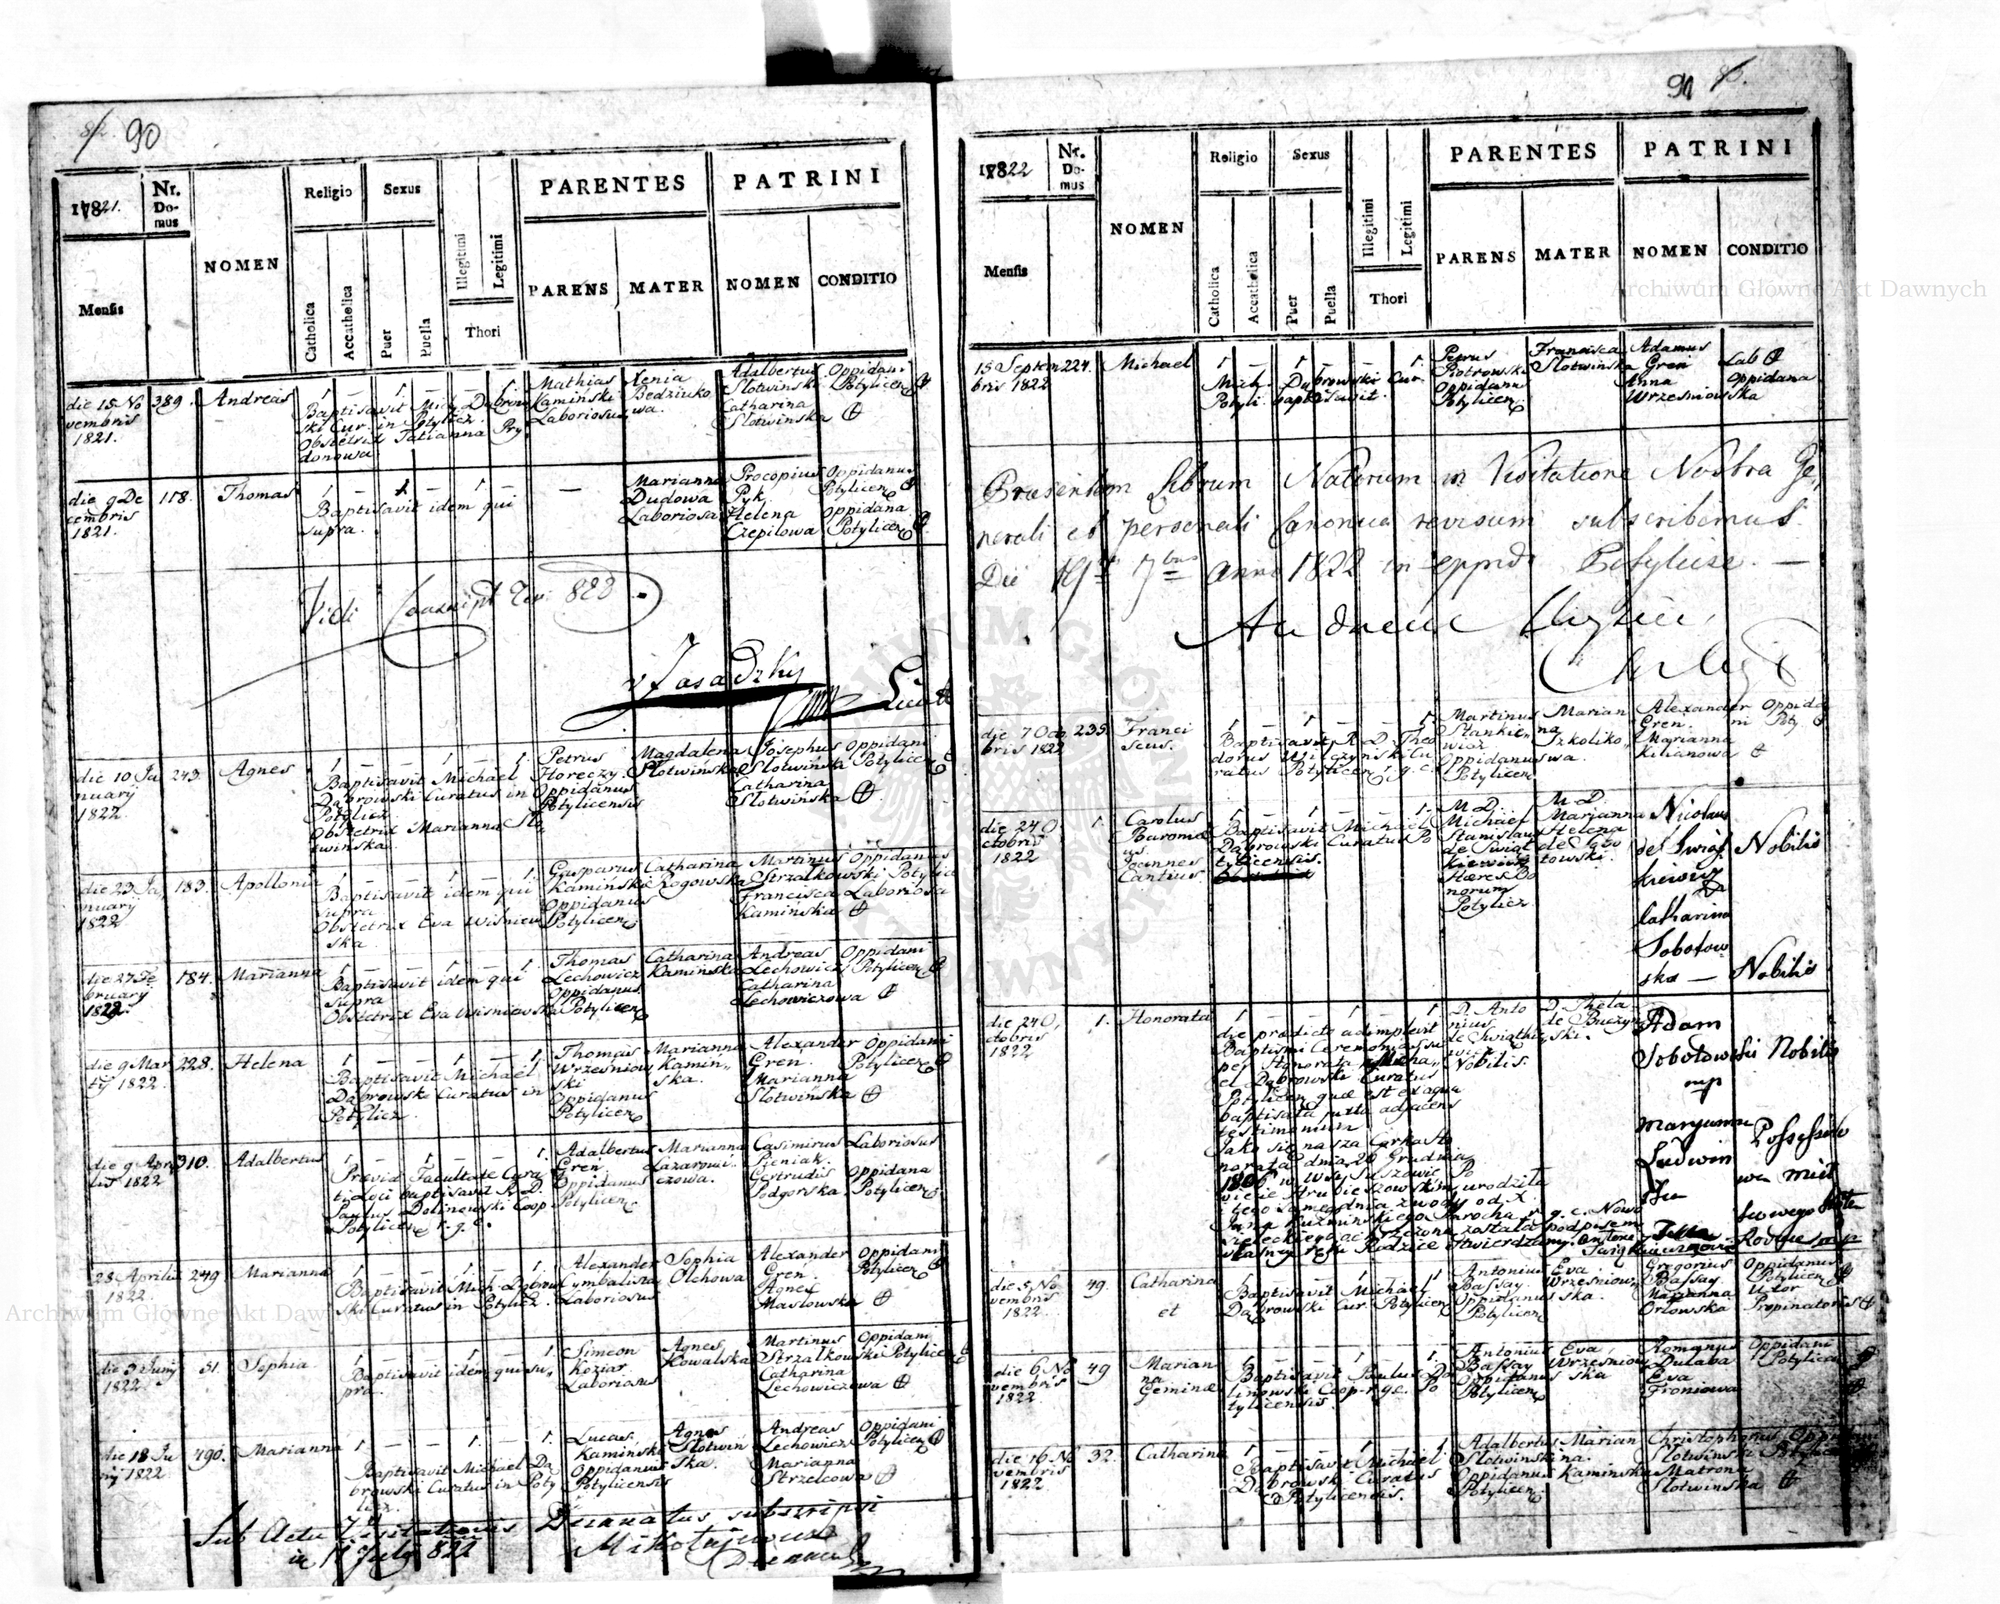 82. 90
1821.
Nr. Domus
NOMEN
Religio
Sexus
PARENTES
PATRINI
Mensis
Catholica
Accatholica
Puer
Puella
Illegitimi
Legitimi
Thori
PARENS
MATER
NOMEN
CONDITIO
die 15 No
vembris
1821.
389.
Andreas
1 — 1 — — 1.
Baptisavit Mich. Dąbrow
ski Cur. in Potylicz
Obstetrix Tatianna Pry
donowa
Mathias
Kamiński
Laboriosus
Xenia
Bedziuko
wa.
Adalbertus
Słotwinski
Catharina
Słotwinska
Oppidani
Potylicen
die 9 De
cembris
1821.
118.
Thomas
1 — 1 — 1. —
Baptisavit idem qui
supra.
—
Marianna
Dudowa
Laboriosa
Procopius
Pyk
Helena
Czepilowa
Oppidanus
Potylicen
Oppidana
Potylicen
Vidi
822
Zasadzky
die 10 Ja
nuary
1822.
243.
Agnes
Baptisavit Michael
Dąbrowski Curatus in
Potylicz
Obstetrix Marianna Sło
twinska
Petrus
Horeczy
Oppidanus
Potylicensis
Magdalena
Słotwińska
Josephus
Słotwinski
Catharina
Słotwińska
Oppidani
Potylicen
die 23 Ja
nuary
1822
183.
Apollonia
Baptisavit idem qui
supra
Obstetrix Eva Wisniew
ska
Gasparus
Kamiński
Oppidanus
Potylicen
Catharina
Rogowska
Martinus
Strzałkowski
Francisca
Kamińska
Oppidanus
Potylicen
Laboriosa
die 27 Fe
bruary
1822.
184.
Marianna
Baptisavit idem qui
supra
Obstetrix Eva Wisniewska
Thomas
Lechowicz
Oppidanus
Potylicen
Catharina
Kamińska
Andreas
Lechowicz
Catharina
Lechowiczowa
Oppidani
Potylicen
die 9 Mar
ty 1822.
228.
Helena
Baptisavit Michael
Dąbrowski Curatus in
Potylicz
Thomas
Wrzesniow
ski
Oppidanus
Potylicen
Marianna
Kamiń-
ska.
Alexander
Gren.
Marianna
Słotwińska
Oppidani
Potylicen
die 9 Apri
lis 1822
310.
Adalbertus
Previa Facultate Cura
ti Loci baptisavit R. D.
Paulus Dolinowski Coop
Potylicen r. g. c.
Adalbertus
Gren
Oppidanus
Potylicen
Marianna
Lazarowi-
czowa.
Casimirus
Pieniak.
Gertrudis
Podgorska
Laboriosus
Oppidana
Potylicen
28 Aprilis
1822.
249
Marianna
Baptisavit Mich. Dąbrow
ski Curatus in Potylicz.
Alexander
Cymbalista
Laboriosus
Sophia
Olchowa
Alexander
Gren.
Agnes
Masłowska
Oppidani
Potylicen
die 5 Juny
1822
51.
Sophia.
Baptisavit idem qui su-
pra.
Simeon
Koziar
Laboriosus
Agnes
Kowalska
Martinus
Strzałkowski
Catharina
Lechowiczowa
Oppidani
Potylicen
die 18 Ju
ny 1822
490.
Marianna
Baptisavit Michael Dą
browski Curatus in Poty
licz.
Lucas
Kaminski
Oppidanus
Potylicensis
Agnes
Słotwiń
ska.
Andreas
Lechowicz
Marianna
Strzelcowa
Oppidani
Potylicen
Sub Actu Visitationis Decanatus subscripsi
in 17 July 822
91 83.
1822
Nr. Domus
NOMEN
Religio
Sexus
PARENTES
PATRINI
Mensis
Catholica
Accatholica
Puer
Puella
Illegitimi
Legitimi
Thori
PARENS
MATER
NOMEN
CONDITIO
15 Septem
bris 1822
224.
Michael
Mich. Dąbrowski Cur.
Potyli. baptisavit.
Petrus
Piotrowski
Oppidanus
Potylicen
Francisca
Słotwińska
Adamus
Gren
Anna
Wrzesniowska
Lab
Oppidana
Praesentem Librum Natorum in Visitatione Nostra Ge-
nerali et personali Canonica revisum subscribimus.
Die 19 7bris anni 1822 in oppido Potylicze. —
die 7 Octo
bris 1822
235.
Franci
scus.
Baptisavit R. D. Theo
dorus Wilczynski Cu
ratus Potylicen r. g. c.
Martinus
Stankie-
wicz
Oppidanus
Potylicen
Marian
na
Szkoliko-
wa.
Alexander
Gren.
Marianna
Kilianowa
Oppida
ni Poty
die 24 O
ctobris
1822
1.
Carolus
Baromæ
us
Joannes
Cantius.
Baptisavit Michael
Dąbrowski Curatus Po
tylicensis.
M. D.
Michael
Stanislaus
de Swiąt
kiewicz
Heres Bo
norum
Potylicz
M. D.
Marianna
Helena
de Sobo
towski.
Nicolaus
de Swiąt
kiewicz
Catharina
Sobotow
ska —
Nobilis
Nobilis
die 24 O,
ctobris
1822
1.
Honorata
die prædicto adimplevit
Baptismi Ceremonias su
per Honorata Micha-
el Dąbrowski Curatus
Potylicen quæ est ex aqua
baptisata juxta adjacens
testimonium
Jako się nasza Corka Ho
norata dnia 20 Grudnia
1806 w Wsi Suszowie Po
wiecie Hrubieszowskim urodziła
i tego samego dnia z wody od X.
Jana Kuzminskiego Parocha r. g. c. Nowo
sieleckiego ochrzczona została podpisem
własney ręki Rodzice stwierdzamy. Antoni
D. Anto
nius
de Swiątkie-
wicz
Nobilis.
D. Thekla
de Buczyn
ski.
Adam
Sobotowski
mp
Maryanna
Ludwin
ska
Nobilis
die 5 No
vembris
1822.
49.
Catharina
et
Baptisavit Michael
Dąbrowski Cur. Potylicen
Antonius
Bassay
Oppidanus
Potylicen
Eva
Wrzesniow-
ska.
Gregorius
Bassay
Marianna
Orłowska
Oppidanus
Potylicen
Uxor
Propinatoris
die 6 No
vembris
1822
49
Marian
na
Geminæ
Baptisavit Paulus Do
linowski Coop. r. g. c. Po
tylicensis
Antonius
Bassay
Oppidanus
Potylicen
Eva
Wrzesniow
ska
Romanus
Dulaba
Eva
Froniowa
Oppidani
Potylicen
die 16 No
vembris
1822
32.
Catharina
Baptisavit Michael
Dąbrowski Curatus
Potylicensis.
Adalbertus
Słotwinski
Oppidanus
Potylicen
Marian
na.
Kaminska
Christophorus
Słotwinski
Matrona
Słotwinska
Archiwum Główne Akt Dawnych
Archiwum Główne Akt Dawnych